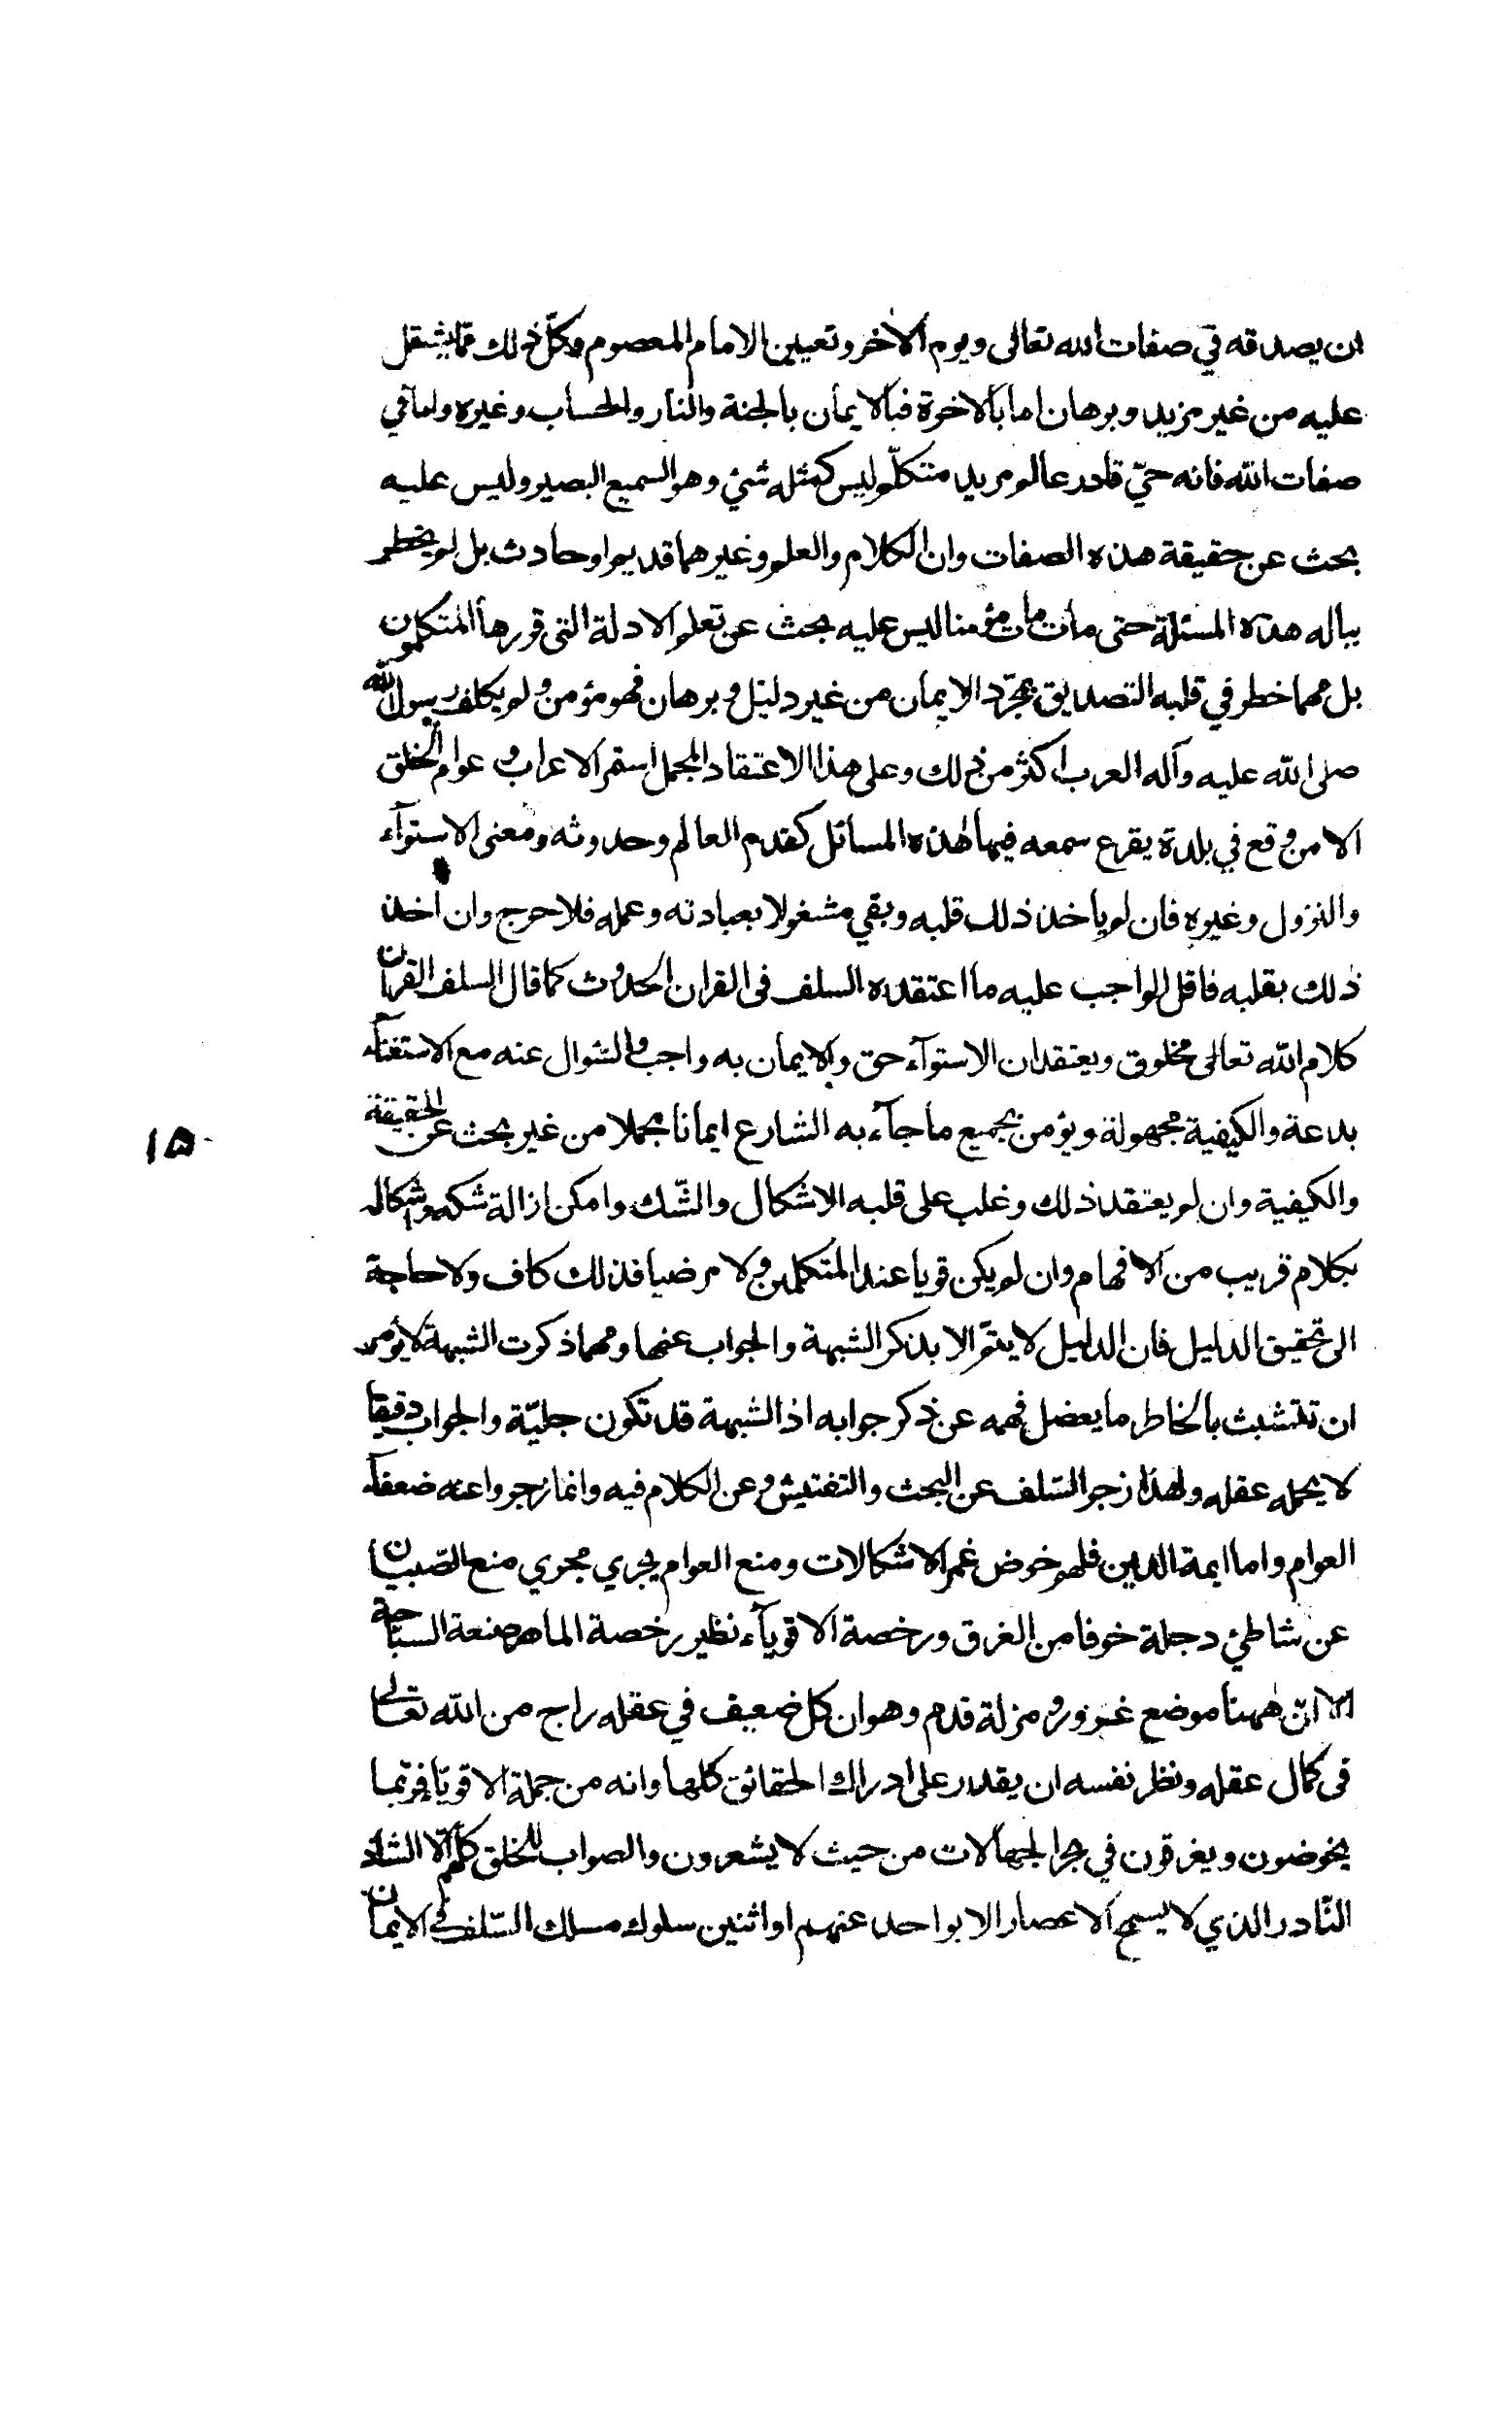 ان يصدقه في صفات الله تعالى ويوم الاخر وتعيين الامام المعصوم وكلّ ذلك ممّا يشتمل
عليه من غير مزيد وبرهان اما بالاخرة فبالايمان بالجنة والنار والحساب وغيره واما في
صفات الله فانه حيّ قادر عالم مريد متكلّم ليس كمثله شئ وهو السميع البصير وليس عليه
بحث عن حقيقة هذه الصفات وان الكلام والعلم وغيرهما قديم او حادث بل لو لم يخطر
بباله هذه المسئلة حتى مات مات مؤمنا ليس عليه بحث عن تعلم الادلة التى قررها المتكلمون
بل مهما خطر في قلبه التصديق بمجرّد الايمان من غير دليل وبرهان فهو مؤمن ولم يكلف رسول الله
صلى الله عليه وآله العرب اكثر من ذلك وعلى هذا الاعتقاد المجمل استمر الاعراب وعوام الخلق
الا من وقع في بلدة يقرع سمعه فيها لهذه المسائل كقدم العالم وحدوثه ومعنى الاستوآء
والنزول وغيره فان لم ياخذ ذلك قلبه وبقي مشغولا بعبادته وعمله فلا حرج وان اخذ
ذلك بقلبه فاقل الواجب عليه ما اعتقده السلف فى القران الحدوث كما قال السلف القران
كلام الله تعالى مخلوق ويعتقد ان الاستوآء حق والايمان به واجب والسّوال عنه مع الاستغنآء
بدعة والكيفية مجهولة ويؤمن بجميع ما جآء به الشارع ايمانا مجملا من غير بحث عن الحقيقة
والكيفية وان لم يعتقد ذلك وغلب على قلبه الاشكال والشّك وامكن ازالة شكه واشكاله
بكلام قريب من الافهام وان لم يكن قويا عند المتكلمين ولا مرضيا فذلك كاف ولا حاجة
الى تحقيق الدليل فان الدليل لا يتمّ الا بذكر الشبهة والجواب عنها ومهما ذكرت الشبهة لا يؤمن
ان تتشبث بالخاطر ما يعضل فهمه عن ذكر جوابه اذ الشبهة قد تكون جليّة والجواب دقيقا
لا يحمله عقله ولهذا زجر السّلف عن البحث والتفتيش وعن الكلام فيه وانما زجروا عنه ضعفآء
العوام واما ايمة الدين فلهم خوض غمر الاشكالات ومنع العوام يجري مجري منع الصّبيان
عن شاطئ دجلة خوفا من الغرق ورخصة الاقويآء نظير رخصة الماهر صنعة السباحة
الا انّ ههنا موضع غرور ومزلة قدم وهو ان كل ضعيف في عقله راج من الله تعالى
فى كمال عقله ونظر نفسه ان يقدر على ادراك الحقائق كلها وانه من جملة الاقويا فربّما
يخوضون ويغرقون في بحر الجهالات من حيث لا يشعرون والصواب للخلق كلّهم الّا الشاذ
النّادر الذي لا يسمح الاعصار الا بواحد عنهم او اثنين سلوك مسلك السّلف في الايمان
١٥٠